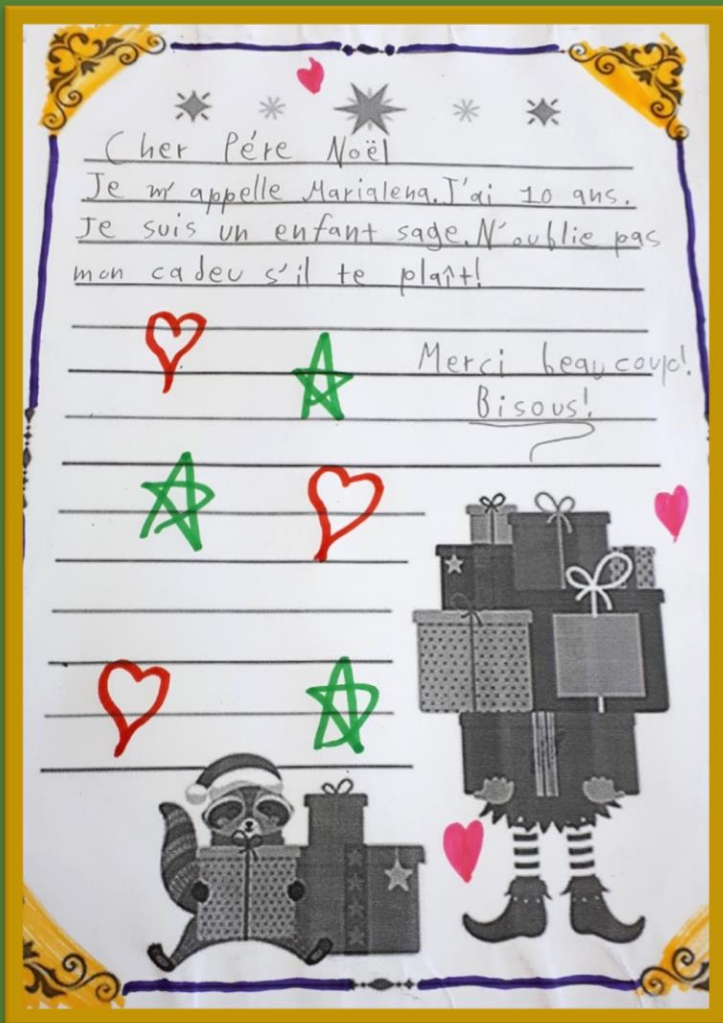 Cher Pére Noël
Je m'appelle Marialena.J'ai 10 ans.
Je suis un enfant sage.N'oublie pas
mon cadeu s'il te plaît!
Merci beaucoup!
Bisous!